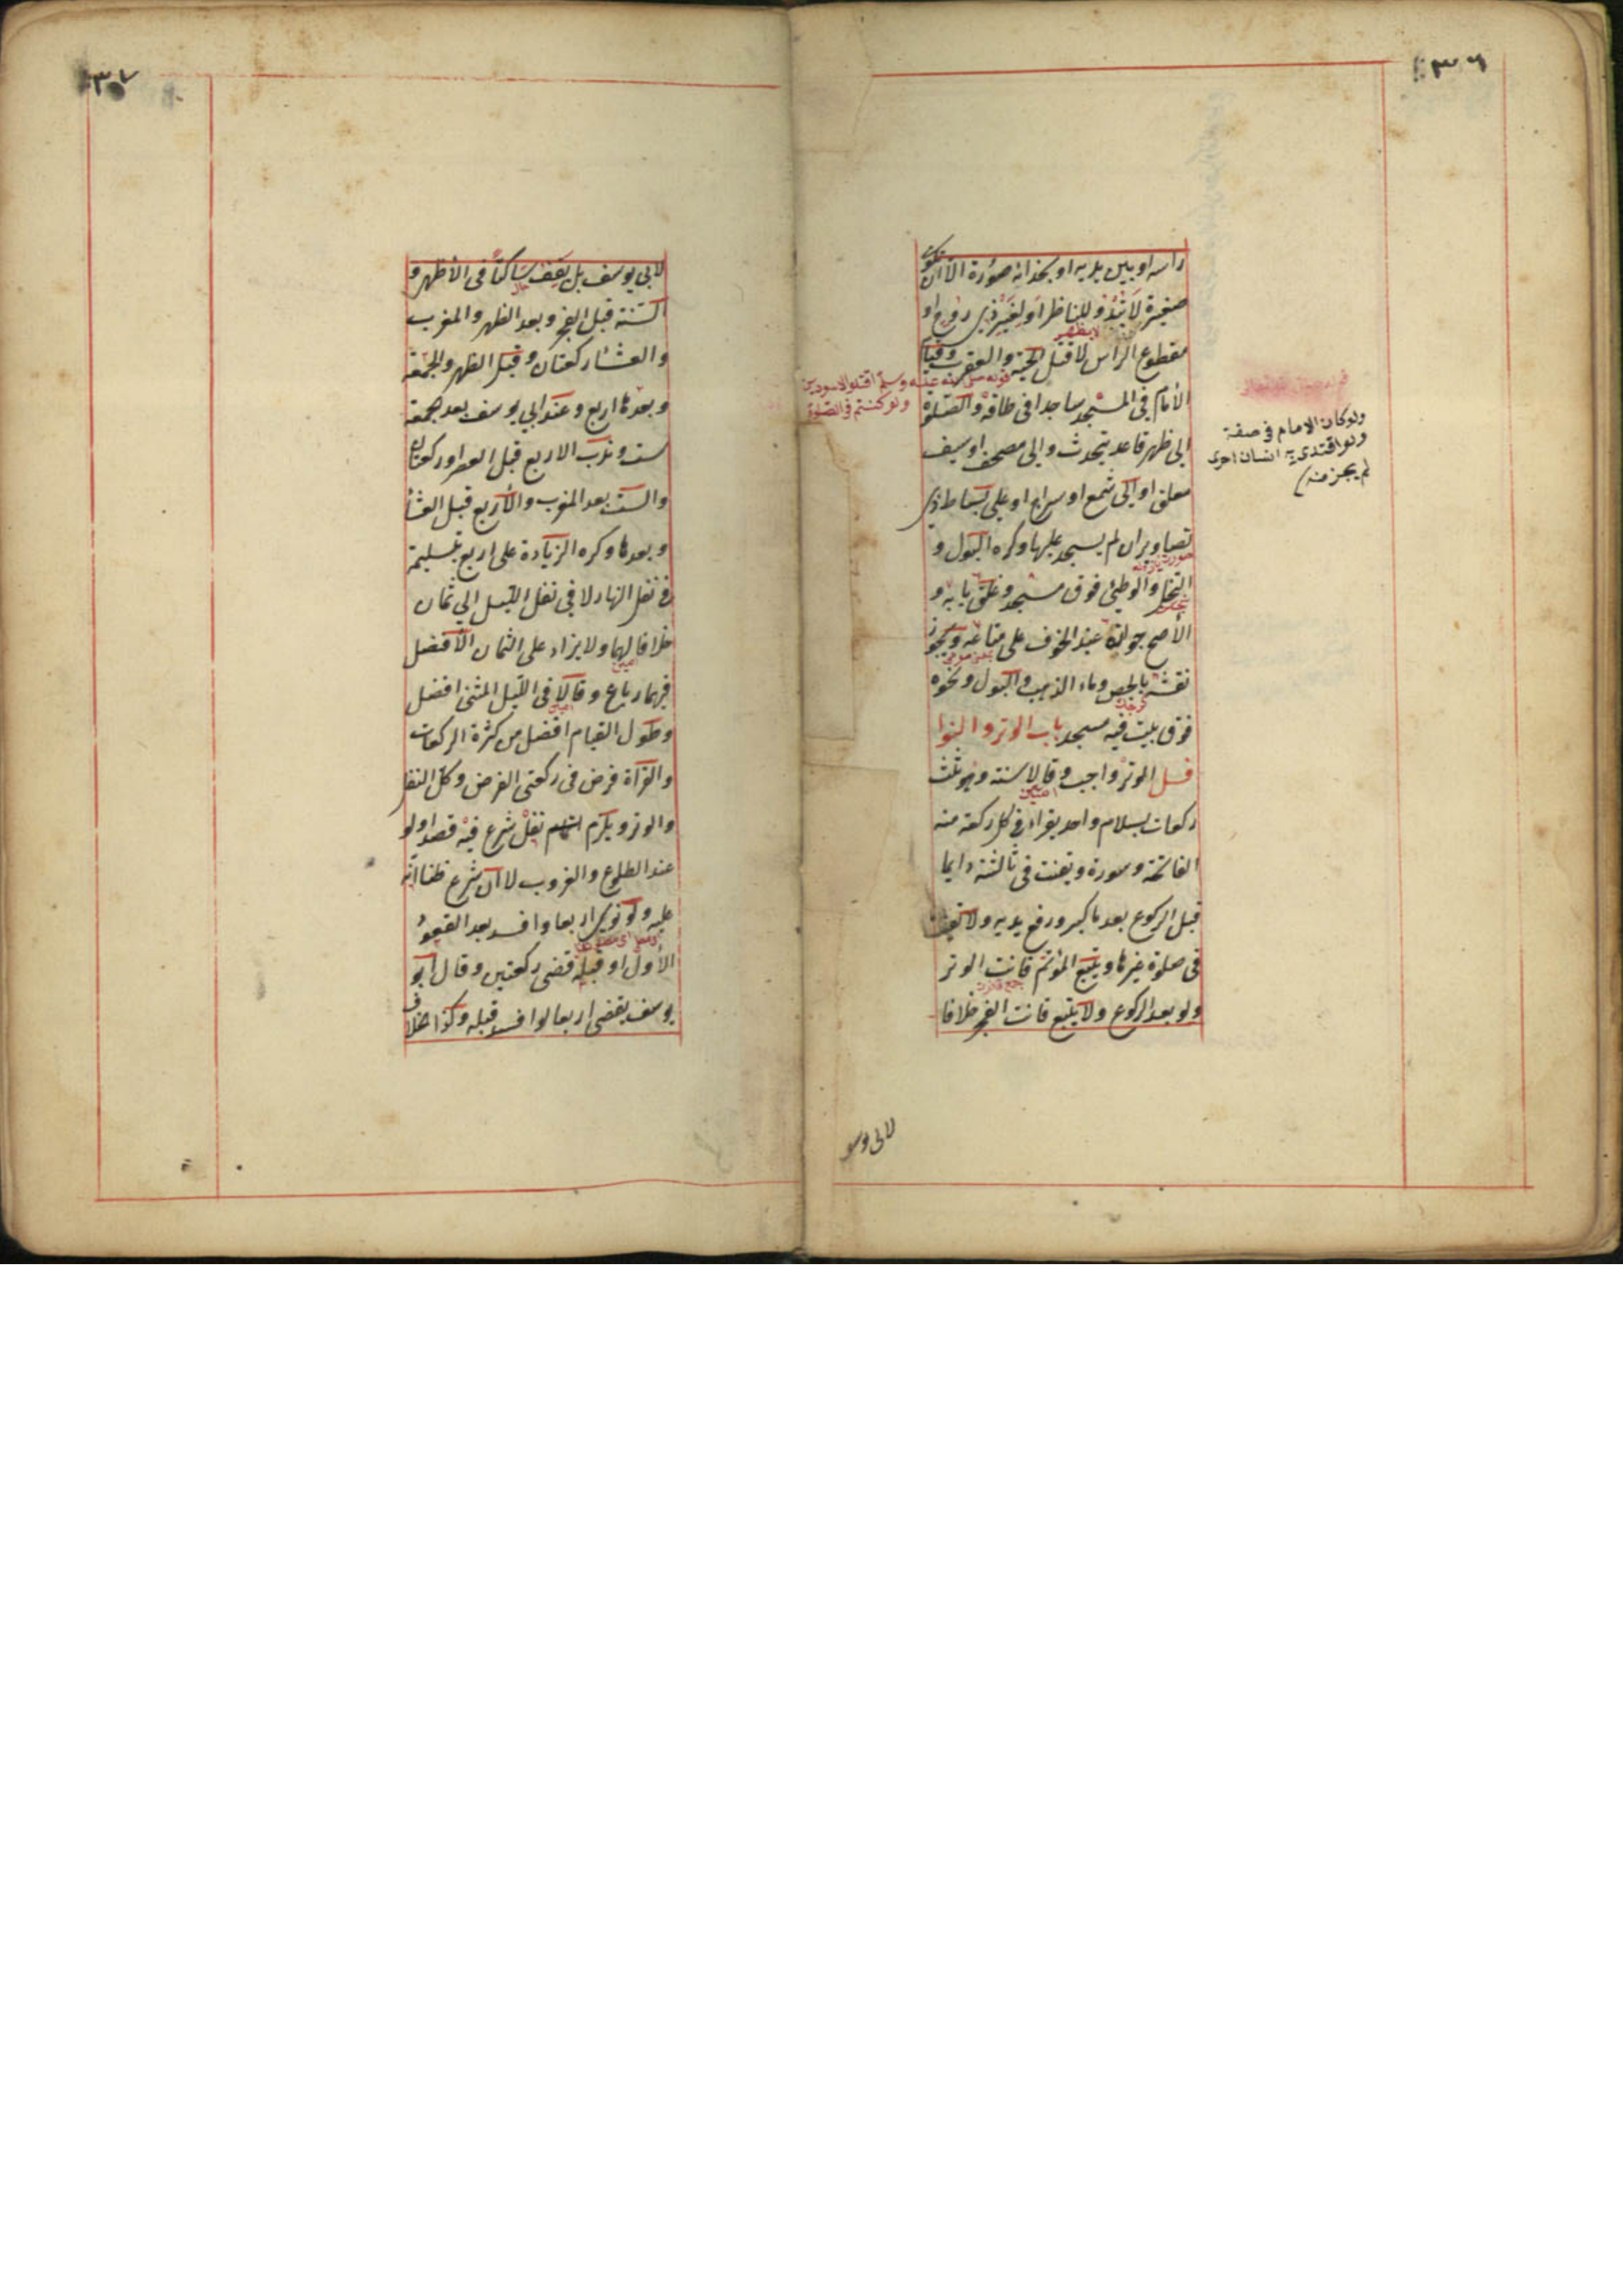 ٣٦
رأسه او بين يديه او بحذائه صورة الا ان تكون
صغيرة لا تبدو للناظر او لغير ذي روح او
لا يظهر
مقطوع الرأس لا قتل الحية والعقرب وقيام
قوله صلى الله عليه وسلم اقتلوا الاسودين
ولو كنتم في الصلوة
الأمام في المسجد ساجدا في طاقه والصلوة
الى ظهر قاعد يتحدث والى مصحف او سيف
معلق او الى شمع او سراج او على بساط ذي
تصاوير ان لم يسجد عليها وكره البول و
التخلي والوطئ فوق مسجد وغلق بابه و
الأصح جوازه عند الخوف على متاعه ويجوز
نقشه بالجص وماء الذهب والبول ونحوه
فوق بيت فيه مسجد باب الوتر والنوا
فل الوتر واجب وقالا سنة وهو ثلث
ركعات بسلام واحد يقرأ في كل ركعة منه
الفاتحة وسورة ويقنت في ثالثته دايما
قبل الركوع بعد ما كبر ورفع يديه ولا يقنت
في صلوة غيرها ويتبع المؤتم قانت الوتر
ولو بعد الركوع ولا يتبع قانت الفجر خلافا
ولو كان الامام في صفة
ولو اقتدى به انسان اخرى
لم يجز منه
٣٧
لابي يوسف بل يقف ساكتا في الأظهر و
السنة قبل الفجر وبعد الظهر والمغرب
والعشاء ركعتان وقبل الظهر والجمعة
وبعدها اربع وعند ابي يوسف بعد الجمعة
ست وندب الاربع قبل العصر او ركعتان
والست بعد المغرب والأربع قبل العشاء
وبعدها وكره الزيادة على اربع بتسليمة
في نفل النهار لا في نفل الليل الى ثمان
خلافا لهما ولا يزاد على الثمان الأفضل
فيهما رباع وقالا في الليل المثنى افضل
وطول القيام افضل من كثرة الركعات
والقرآة فرض في ركعتي الفرض وكل النفل
والوتر ويلزم اتمام نفل شرع فيه قصدا ولو
عند الطلوع والغروب لا ان شرع ظنا انه
عليه ولو نوى اربعا وافسد بعد القعود
الأول او قبله قضى ركعتين وقال ابو
يوسف يقضي اربعا لو افسد قبله وكذا خلاف